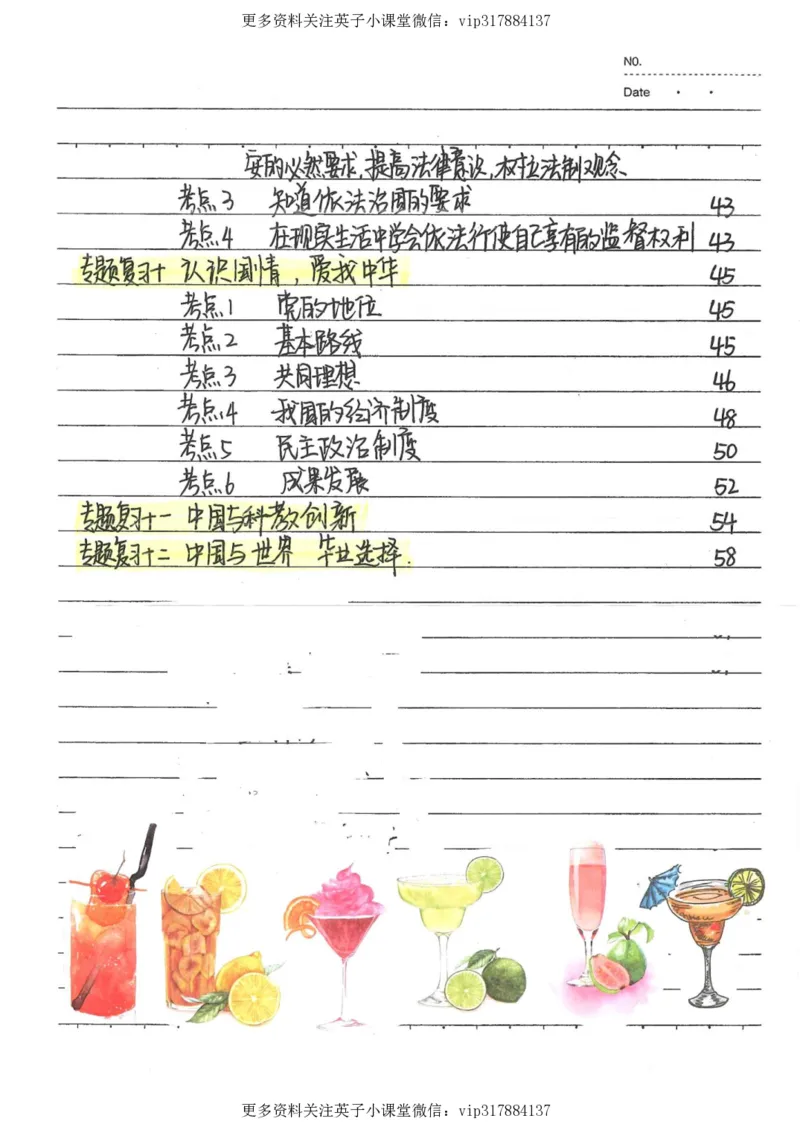 更多资料关注英子小课堂微信：vip317884137
NO.
Date
安的必然要求,提高法律意识,树立法制观念、
考点3 知道依法治国的要求 43
考点4 在现实生活中学会依法行使自己享有的监督权利 43
专题复习十 认识国情，爱我中华 45
考点1 党的地位 45
考点2 基本路线 45
考点3 共同理想 46
考点4 我国的经济制度 48
考点5 民主政治制度 50
考点6 成果发展 52
专题复习十一 中国与科教创新 54
专题复习十二 中国与世界 毕业选择. 58
更多资料关注英子小课堂微信：vip317884137